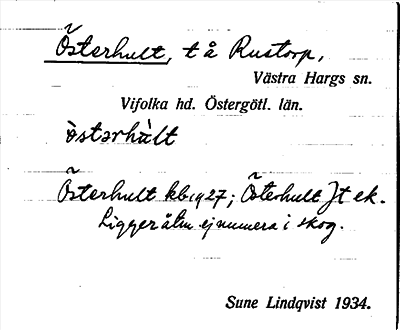 Österhult, t å Rustorp,
Västra Hargs sn.
Vifolka hd. Östergötl. län.
östərhùlt
Österhult kb 1927; Österhult Jt ek.
Ligger åtm. ej numera i skog.
Sune Lindqvist 1934.